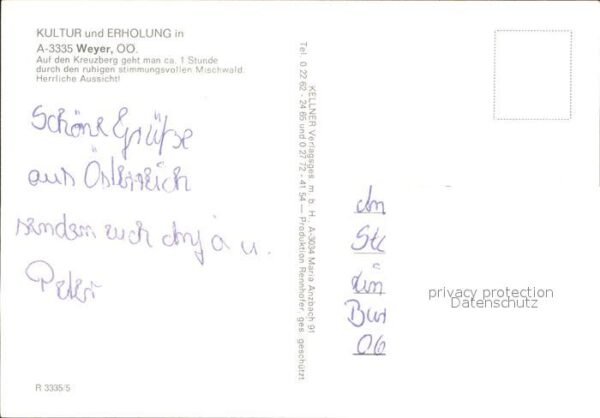 KULTUR und ERHOLUNG in
A-3335 Weyer, OÖ.
Auf den Kreuzberg geht man ca. 1 Stunde
durch den ruhigen stimmungsvollen Mischwald.
Herrliche Aussicht!
Schöne Grüße
aus Österreich
senden euch u.
Peter
KELLNER Verlagsges. m. b. H., A-3034 Maria Anzbach 91
Tel. 0 22 62 - 24 65 und 0 27 72 - 41 54 — Produktion Rennhofer, ges. geschützt
An
Bur
privacy protection
Datenschutz
R 3335/5